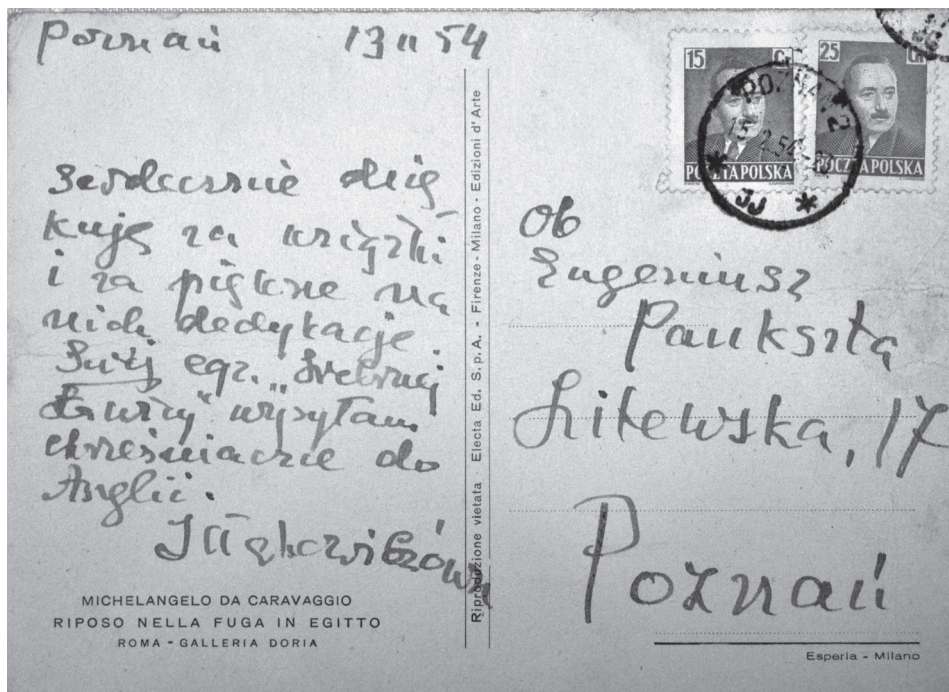 Poznań 13 II 54
Serdecznie dzię
kuję za książki
i za piękne na
nich dedykacje
egz. „Srebrnej
Ławicy" wysyłam
chrześniaczce do
Anglii.
I Iłłakowiczówna
MICHELANGELO DA CARAVAGGIO
RIPOSO NELLA FUGA IN EGITTO
ROMA - GALLERIA DORIA
Riproduzione vietata - Electa Ed. S.p.A. - Firenze - Milano - Edizioni d'Arte
15 Gr
POCZTA POLSKA
25 Gr
POCZTA POLSKA
POZNAŃ 2
Ob
Eugeniusz
Paukszta
Litewska, 17
Poznań
Esperia - Milano